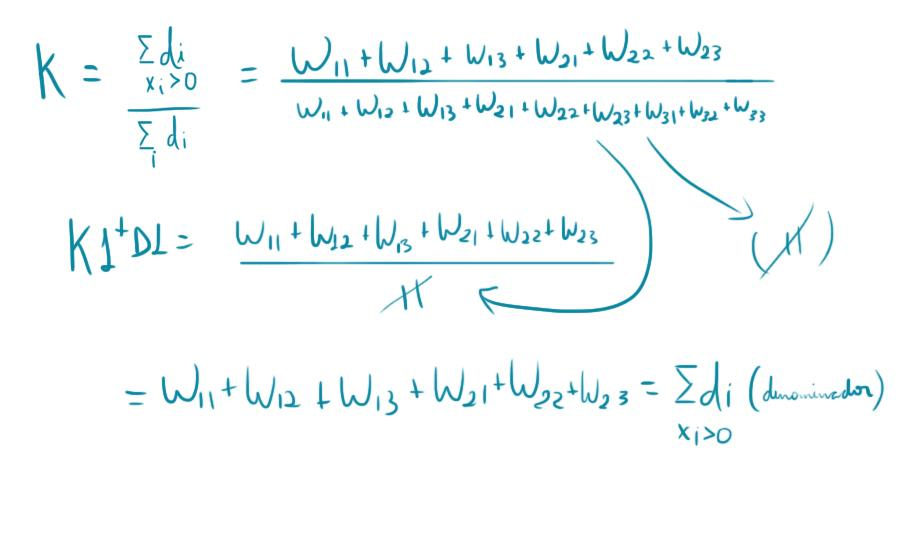 K = Σ di xi>0 / Σ i di = W11 + W12 + W13 + W21 + W22 + W23 / W11 + W12 + W13 + W21 + W22 + W23 + W31 + W32 + W33
K 1ᵀ D 1 = W11 + W12 + W13 + W21 + W22 + W23
= W11 + W12 + W13 + W21 + W22 + W23 = Σ di xi>0 (denominador)